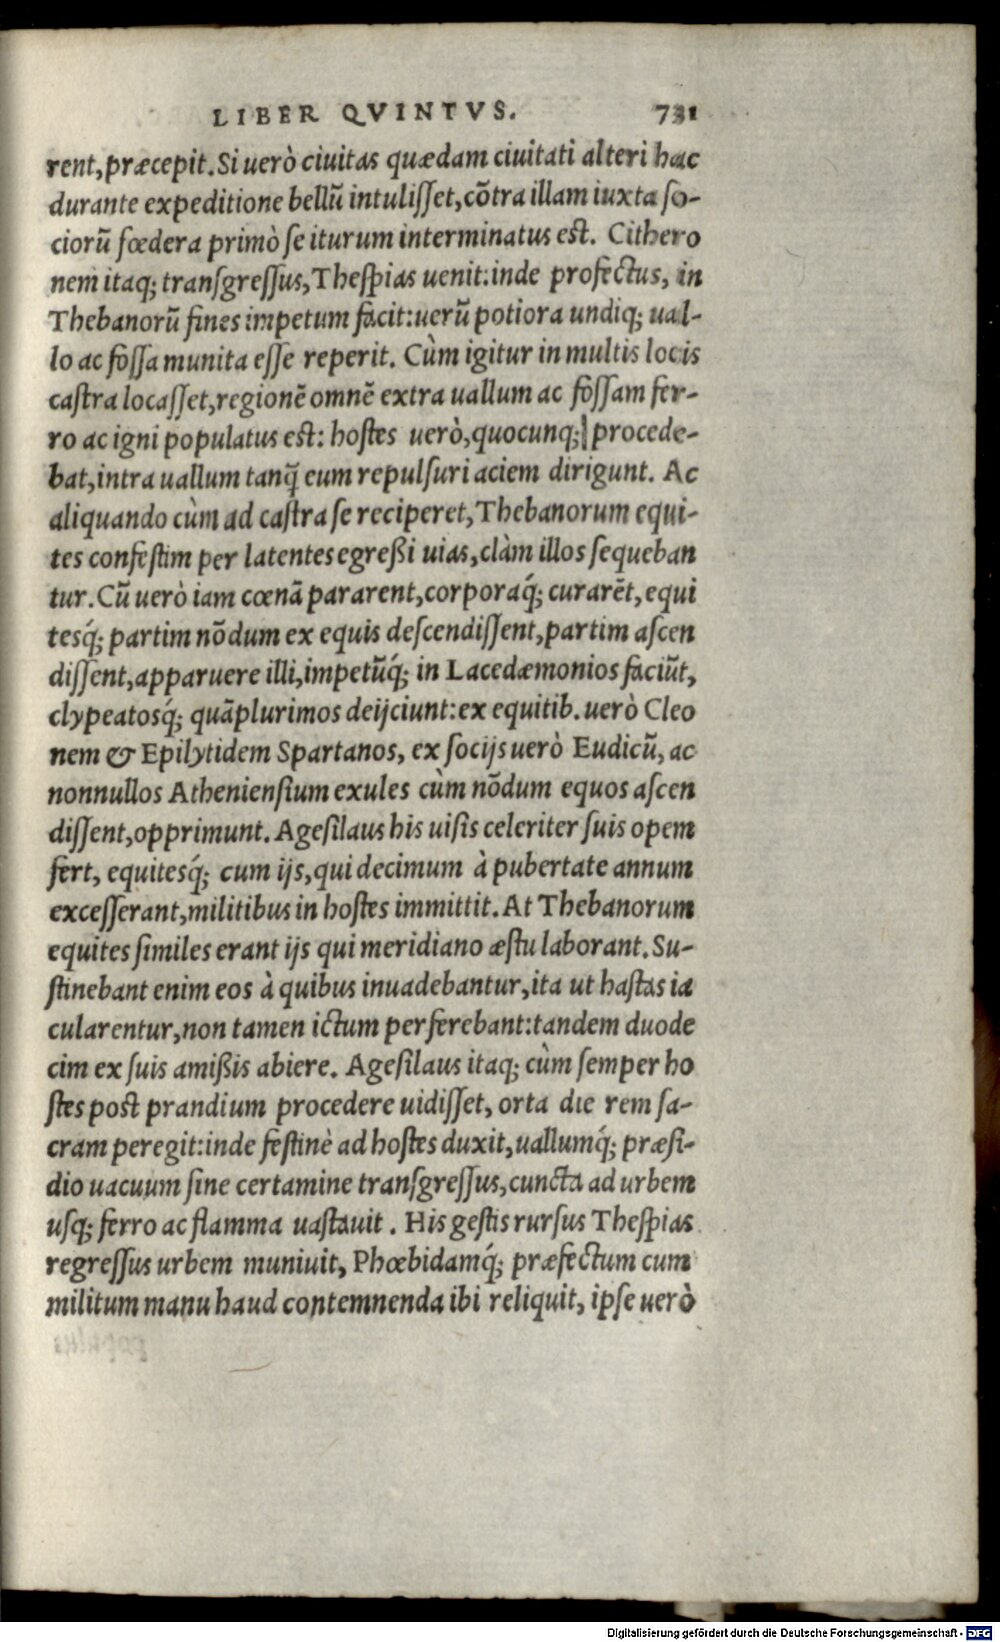 LIBER QVINTVS. 731
rent, præcepit. Si uerò ciuitas quædam ciuitati alteri hac
durante expeditione bellũ intuliſſet, cõtra illam iuxta ſo-
ciorũ fœdera primò ſe iturum interminatus eſt. Cithero
nem itaq; tranſgreſſus, Theſpias uenit: inde profectus, in
Thebanorũ fines impetum facit: uerũ potiora undiq; ual-
lo ac foſſa munita eſſe reperit. Cùm igitur in multis locis
caſtra locaſſet, regionẽ omnẽ extra uallum ac foſſam fer-
ro ac igni populatus eſt: hoſtes uerò, quocunq; procede-
bat, intra uallum tanq̃ eum repulſuri aciem dirigunt. Ac
aliquando cùm ad caſtra ſe reciperet, Thebanorum equi-
tes confeſtim per latentes egreßi uias, clàm illos ſequeban
tur. Cũ uerò iam cœnã pararent, corporaq́; curarẽt, equi
tesq́; partim nõdum ex equis deſcendiſſent, partim aſcen
diſſent, apparuere illi, impetũq́; in Lacedæmonios faciũt,
clypeatosq́; quãplurimos deijciunt: ex equitib. uerò Cleo
nem & Epilytidem Spartanos, ex ſocijs uerò Eudicũ, ac
nonnullos Athenienſium exules cùm nõdum equos aſcen
diſſent, opprimunt. Ageſilaus his uiſis celeriter ſuis opem
fert, equitesq́; cum ijs, qui decimum à pubertate annum
exceſſerant, militibus in hoſtes immittit. At Thebanorum
equites ſimiles erant ijs qui meridiano æſtu laborant. Su-
ſtinebant enim eos à quibus inuadebantur, ita ut haſtas ia
cularentur, non tamen ictum perferebant: tandem duode
cim ex ſuis amißis abiere. Ageſilaus itaq; cùm ſemper ho
ſtes poſt prandium procedere uidiſſet, orta die rem ſa-
cram peregit: inde feſtinè ad hoſtes duxit, uallumq́; præſi-
dio uacuum ſine certamine tranſgreſſus, cuncta ad urbem
uſq; ferro ac flamma uaſtauit. His geſtis rurſus Theſpias
regreſſus urbem muniuit, Phœbidamq́; præfectum cum
militum manu haud contemnenda ibi reliquit, ipſe uerò
Digitalisierung gefördert durch die Deutsche Forschungsgemeinschaft - DFG